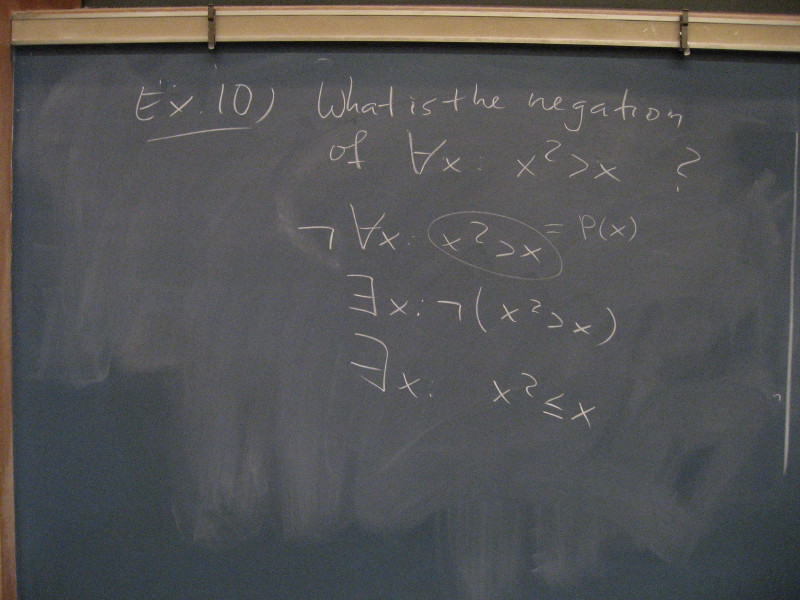 Ex. 10) What is the negation
of ∀x: x² > x ?
¬ ∀x: x² > x = P(x)
∃x: ¬(x² > x)
∃x: x² ≤ x